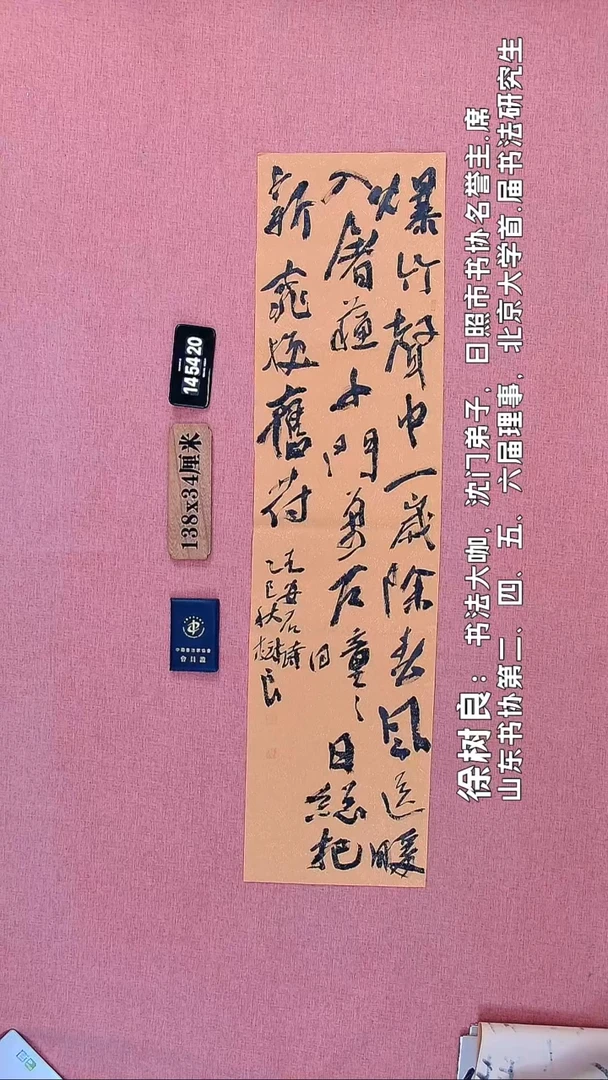 徐树良：书法大咖，沈门弟子，日照市书协名誉主.席
山东书协第二、四、五、六届理事，北京大学首.届书法研究生
爆竹聲中一歲除春風送暖
入屠蘇千門萬户童〻日總把
新桃換舊符
王安石詩
乙巳秋樹良
145420
138x34厘米
中國書法家協會
會員證